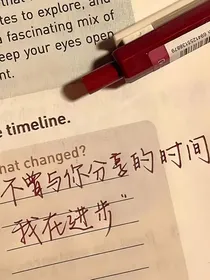 tes to explore, and
a fascinating mix of
eep your eyes open
nt.
e timeline.
hat changed?
不曾与你分享的时间
我在进步